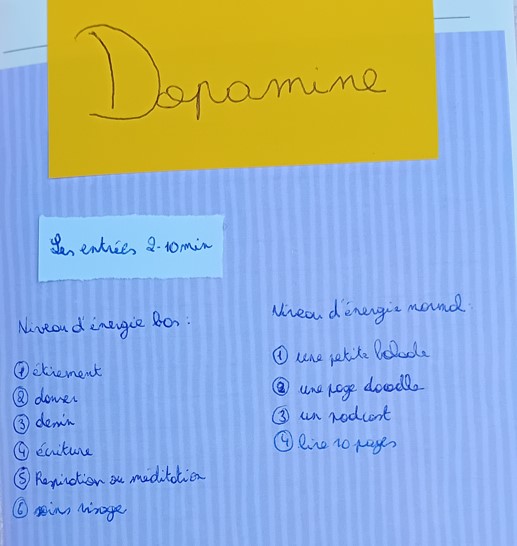 Dopamine
Les entrées 2-10 min
Niveau d'énergie bas :
① étirement
② danser
③ dessin
④ écriture
⑤ Respiration ou méditation
⑥ soins visage
Niveau d'énergie normal :
① une petite balade
② une page doodle
③ un podcast
④ lire 10 pages